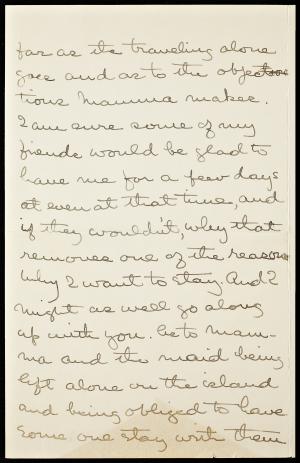 far as its traveling alone
goes and as to the objec-
tions Mamma makes.
I am sure some of my
friends would be glad to
have me for a few days
at even at that time, and
if they wouldn't, why that
removes one of the reasons
why I want to stay. And I
might as well go along
up with you. As to Mam-
ma and the maid being
left alone on the island
and being obliged to have
some one stay with them